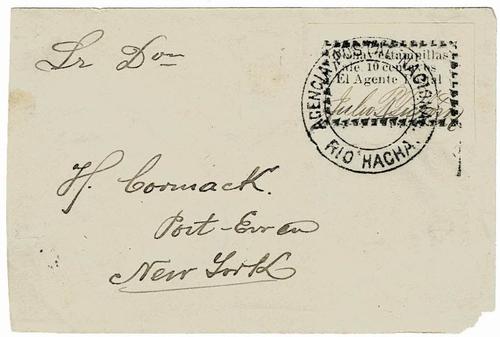 Sr Don
H. Cormack.
Port-Ewen
New York
AGENCIA POSTAL NACIONAL
RIO HACHA
No hay estampillas
Vale 10 centavos
El Agente Postal
Julio